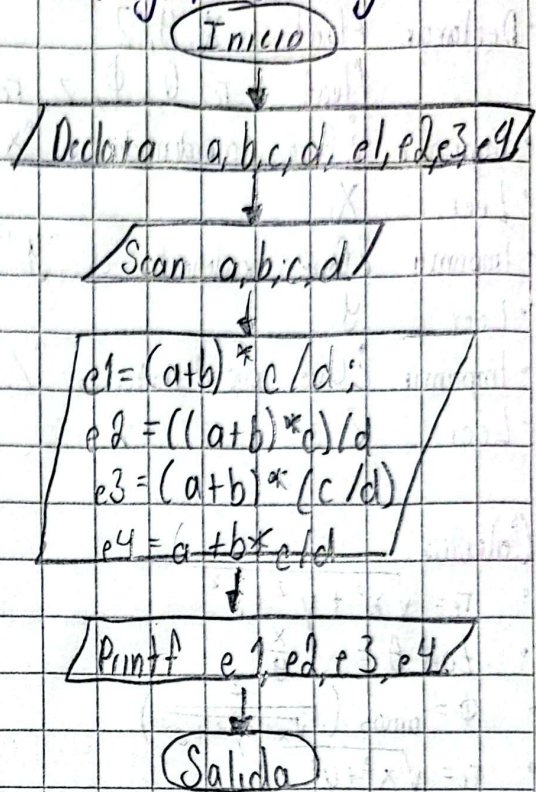 Inicio
Declara a, b, c, d, e1, e2, e3, e4
Scan a, b, c, d
e1 = (a+b) * c / d;
e2 = ((a+b) * c) / d
e3 = (a+b) * (c / d)
e4 = a + b * c / d
Printf e1, e2, e3, e4
Salida